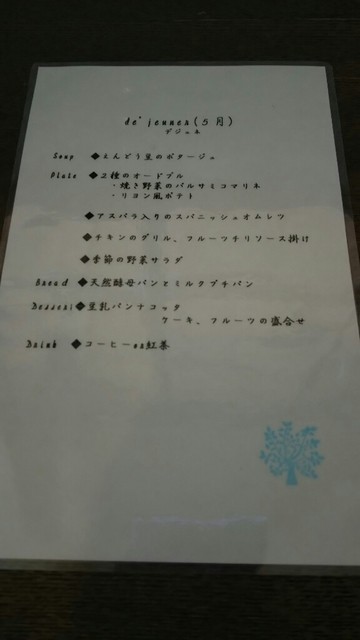 de'jeunes(5月)
デジュネ
Soup ◆えんどう豆のポタージュ
Plate ◆2種のオードブル
・焼き野菜のバルサミコマリネ
・リヨン風ポテト
◆アスパラ入りのスパニッシュオムレツ
◆チキンのグリル、フルーツチリソース掛け
◆季節の野菜サラダ
Bread ◆天然酵母パンとミルクプチパン
Dessert◆豆乳パンナコッタ
ケーキ、フルーツの盛合せ
Drink ◆コーヒーor紅茶